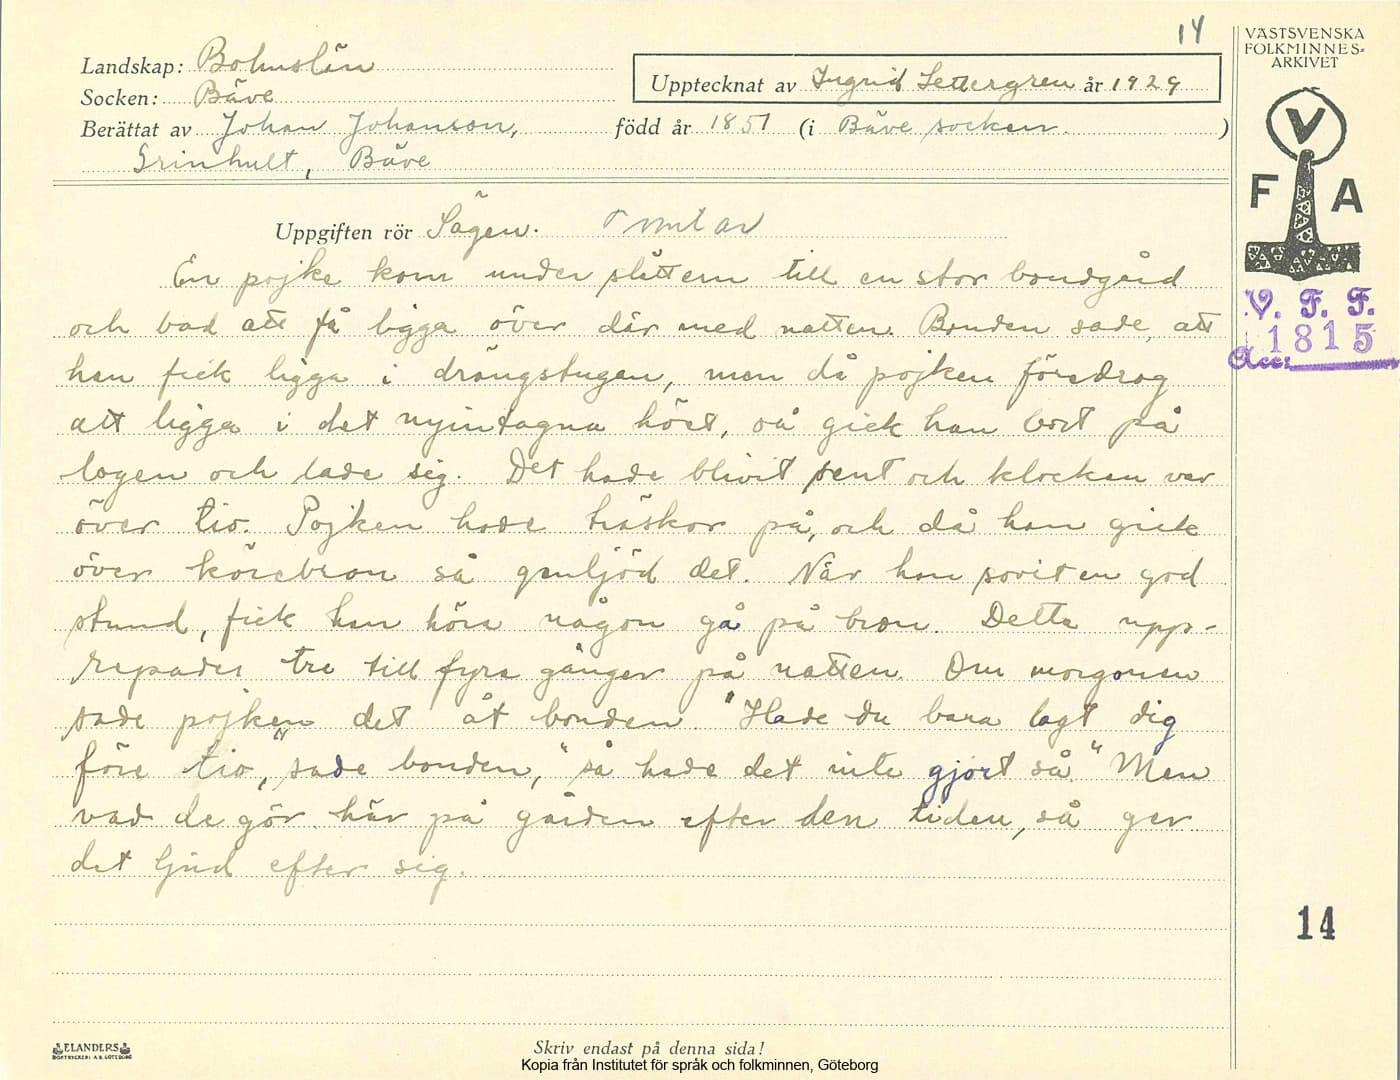 14
VÄSTSVENSKA
FOLKMINNES-
ARKIVET
Landskap: Bohuslän
Socken: Bäve
Upptecknat av Ingrid Settergren år 1929
Berättat av Johan Johanson, född år 1851 (i Bäve socken. )
Grinhult, Bäve
V
F A
Uppgiften rör Sägen. Tomtar
En pojke kom under slåttern till en stor bondgård
och bad att få ligga över där med natten. Bonden sade, att
han fick ligga i drängstugan, men då pojken föredrog
att ligga i det nyintagna höet, så gick han bort på
logen och lade sig. Det hade blivit sent och klockan var
över tio. Pojken hade träskor på, och då han gick
över körebron så genljöd det. När han sovit en god
stund, fick han höra någon gå på bron. Detta upp-
repades tre till fyra gånger på natten. Om morgonen
sade pojken det åt bonden. "Hade du bara lagt dig
före tio," sade bonden, "så hade det inte gjort så." Men
vad de gör här på gården efter den tiden, så ger
det ljud efter sig.
V. F. F.
1815
Acc:
14
ELANDERS
BOKTRYCKERI A.B. GÖTEBORG
Skriv endast på denna sida!
Kopia från Institutet för språk och folkminnen, Göteborg